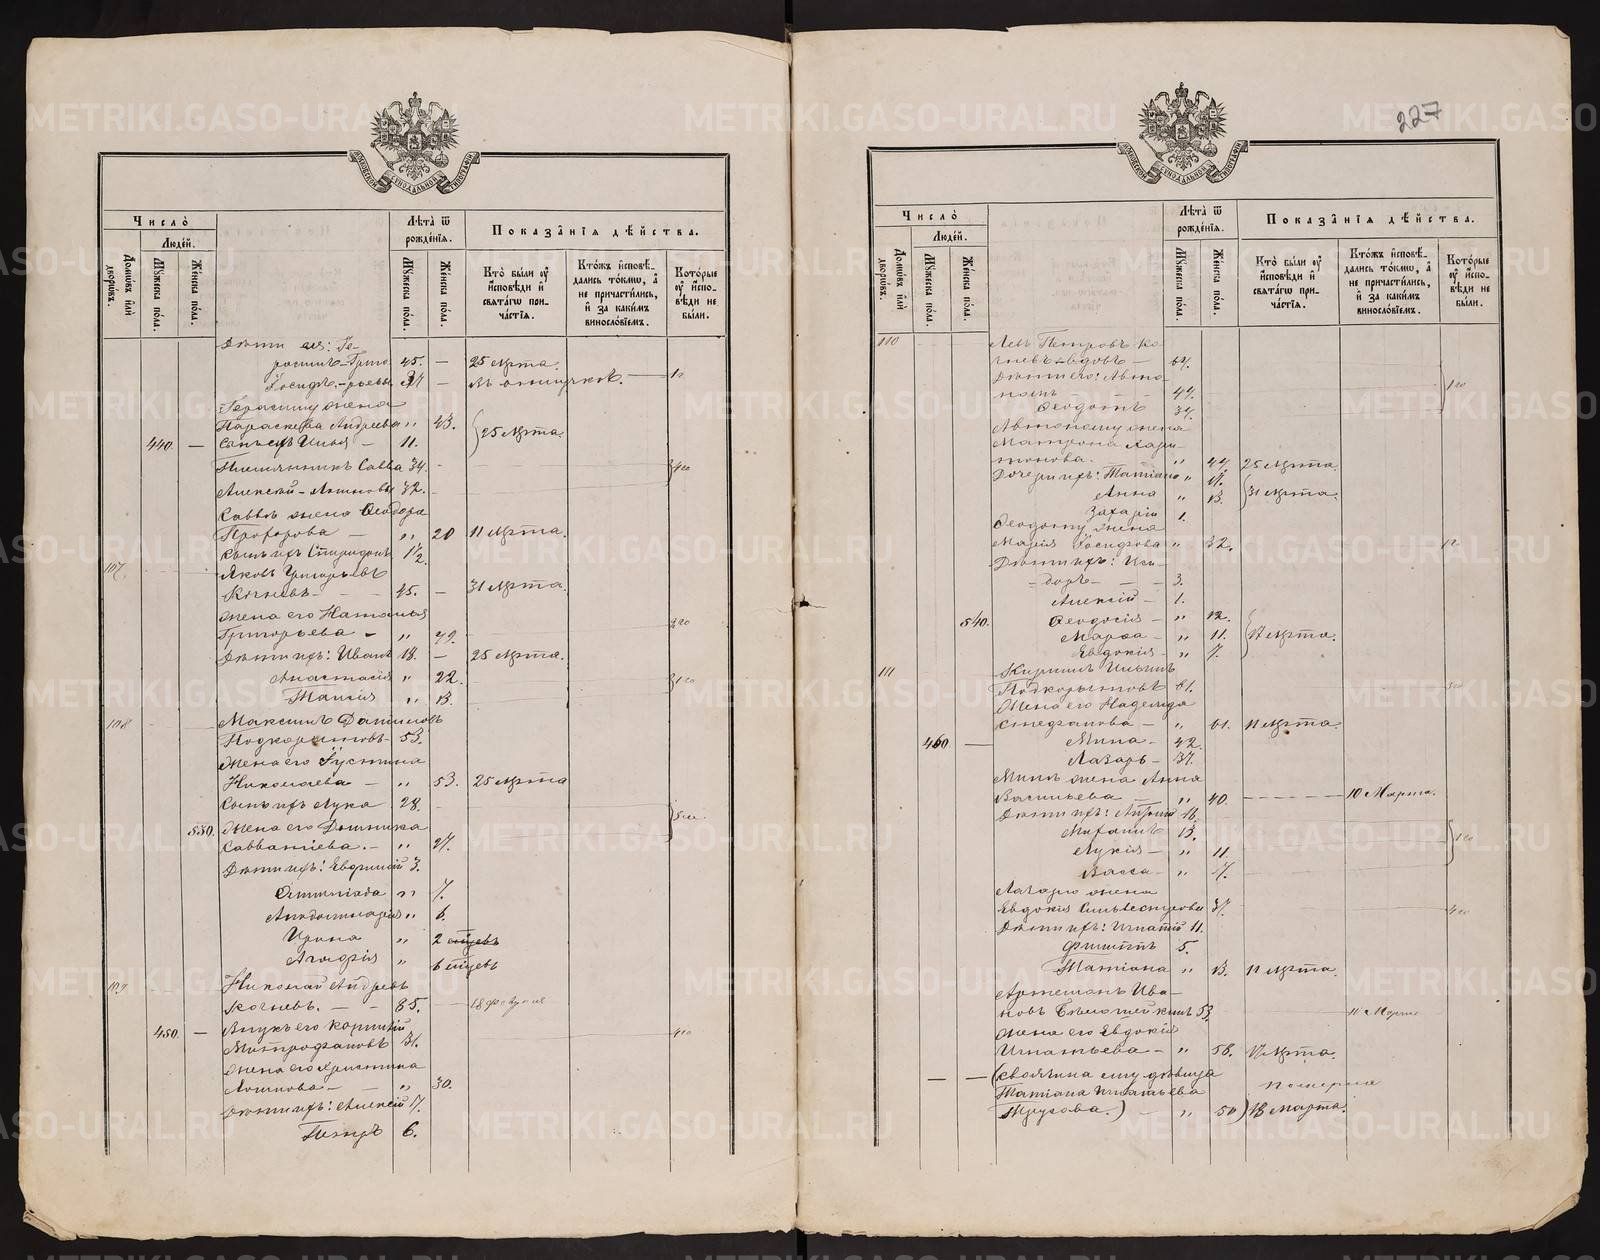 METRIKI.GASO-URAL.RU
МОСКОВСКОЙ СѴНОДАЛЬНОЙ ТИПОГРАФІИ
Число̀
Людей.
Домѡвъ или дворѡвъ.
Мꙋжеска пола.
Женска пола.
Лѣта ѿ рожденїя.
Мꙋжеска пола.
Женска пола.
Показанїя дѣйства.
Кто были оу исповѣди и святагѡ причастїя.
Ктожъ исповѣдались токмѡ, а не причастились, и за какимъ винословїемъ.
Которые оу исповѣди не были.
Дѣти ея: Ге-
45. — 25 Мрта.
Іосифъ
Герасиму жена
Параскева Андреева „ 43.
25 Мрта.
440. — Сынъ ихъ Илья — 11.
Племянникъ Савва 34.
Алексѣй 32.
Саввы жена Ѳеодора
Прохорова — „ 20 11 Мрта.
Сынъ ихъ Спиридонъ 1½.
107. Яковъ Григорьевъ
Кочневъ 45. — 31 Мрта.
Жена его Наталья
Григорьева — „
Дѣти ихъ: Иванъ 18. — 25 Мрта.
Анастасія „ 22.
Таисія „ 13.
108 Максимъ
Подкорытовъ 53.
Жена его Іустина
Николаева — „ 53. 25 Мрта
Сынъ ихъ Лука 28.
530. Жена его Домника
Савватіева. — „ 27.
Дѣти ихъ: Евфимій 3.
Олимпіада „ 7.
Апполинарія „ 6.
Ирина „ 2
Агафія „ 6 мѣсяцевъ
109 Николай Андреевъ
Кочневъ. — 85. 18 февраля
450. — Внукъ его
Митрофановъ 31.
Жена его Христина
Логинова — „ 30.
Дѣти ихъ: Алексѣй 17.
Петръ 6.
227
МОСКОВСКОЙ СѴНОДАЛЬНОЙ ТИПОГРАФІИ
Число̀
Людей.
Домѡвъ или дворѡвъ.
Мꙋжеска пола.
Женска пола.
Лѣта ѿ рожденїя.
Мꙋжеска пола.
Женска пола.
Показанїя дѣйства.
Кто были оу исповѣди и святагѡ причастїя.
Ктожъ исповѣдались токмѡ, а не причастились, и за какимъ винословїемъ.
Которые оу исповѣди не были.
110 Левъ Петровъ Ко-
чневъ вдовъ — 67.
Дѣти его: Авто-
номъ — 44.
Ѳеодотъ 37.
Автоному жена
Матрона Хари-
тонова. — „ 44. 25 Мрта.
Дочери ихъ: Татіана „ 17.
Анна „ 13. 31 Мрта.
Захарія 1.
Ѳеодоту жена
Марія Іосифова „ 32.
Дѣти ихъ: Иси-
доръ — 3.
Алексій — 1.
540. Ѳеодосія — „ 12.
Марѳа — „ 11. 17 Мрта.
Евдокія — „ 7.
111 Кириллъ Ильинъ
Подкорытовъ 61.
Жена его Надежда
Стефанова — „ 61. 11 Мрта.
460 — Мина — 42.
Лазарь — 37.
Минѣ жена Анна
Васильева — „ 40. 10 Марта.
Дѣти ихъ: Андрей 16.
Михаилъ 13.
Лукія — „ 11.
Васса — „ 7.
Лазарю жена
Евдокія Сильвестрова 37.
Дѣти ихъ: Игнатій 11.
Филиппъ 5.
Татіана „ 13. 11 Мрта.
Артемонъ Ива-
новъ 53.
Жена его Евдокія
Игнатьева — „ 58. 17 Мрта.
— — (своячина ему дѣвица
Татіана Игнатьева
Трусова.) — „ 50) 18 Марта.
померла